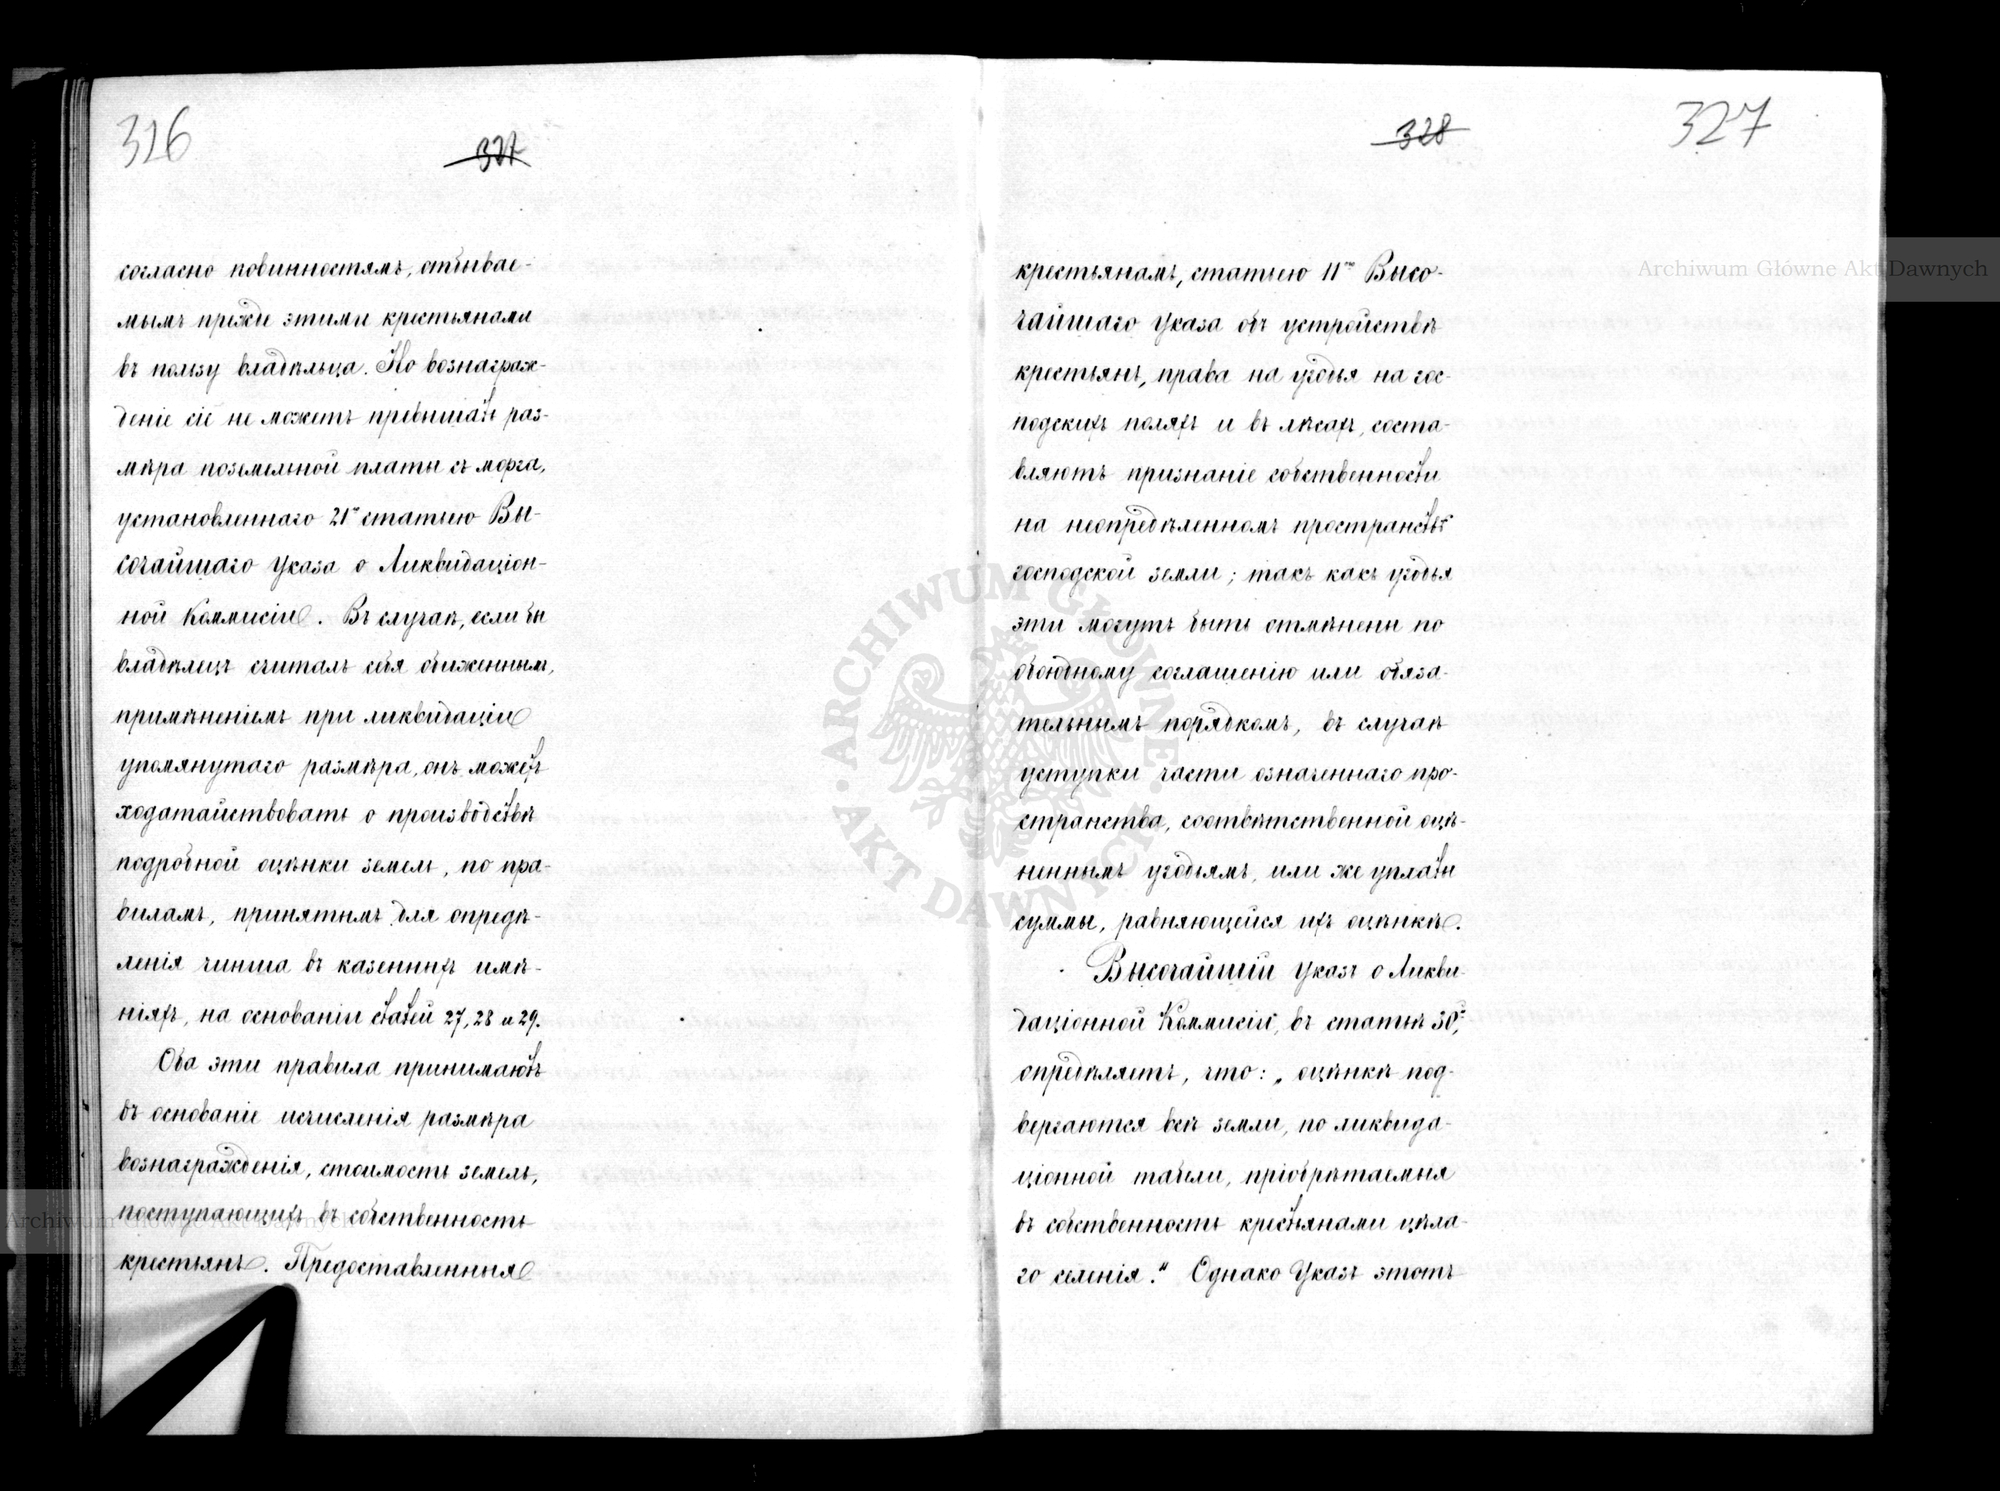 316
327
согласно повинностямъ, отбывае-
мымъ прежде этими крестьянами
въ пользу владѣльца. Но вознаграж-
деніе сіе не можетъ превышать раз-
мѣра поземельной платы съ морга,
установленнаго 21ю статьею Вы-
сочайшаго Указа о Ликвидаціон-
ной Коммисіи. Въ случаѣ, если бы
владѣлецъ считалъ себя обиженнымъ,
примѣненіемъ при ликвидаціи
упомянутаго размѣра, онъ можетъ
ходатайствовать о производствѣ
подробной оцѣнки земель, по пра-
виламъ, принятымъ для опредѣ-
ленія чинша въ казенныхъ имѣ-
ніяхъ, на основаніи статей 27, 28 и 29.
Оба эти правила принимаютъ
въ основаніе исчисленія размѣра
вознагражденія, стоимость земель,
поступающихъ въ собственность
крестьянъ. Предоставленныя
328
327
крестьянамъ, статьею 11ю Высо-
чайшаго Указа объ устройствѣ
крестьянъ, права на угодья на гос-
подскихъ поляхъ и въ лѣсахъ, соста-
вляютъ признаніе собственности
на неопредѣленномъ пространствѣ
господской земли; такъ какъ угодья
эти могутъ быть отмѣнены по
обоюдному соглашенію или обяза-
тельнымъ порядкомъ, въ случаѣ
уступки части означеннаго про-
странства, соотвѣтственной оцѣ-
неннымъ угодьямъ, или же уплаты
суммы, равняющейся ихъ оцѣнкѣ.
Высочайшій Указъ о Ликви-
даціонной Коммисіи, въ статьѣ 30й,
опредѣляетъ, что: „оцѣнкѣ под-
вергаются всѣ земли, по ликвида-
ціонной табели, пріобрѣтаемыя
въ собственность крестьянами цѣла-
го селенія." Однако Указъ этотъ
Archiwum Główne Akt Dawnych
Archiwum Główne Akt Dawnych
ARCHIWUM GŁÓWNE AKT DAWNYCH